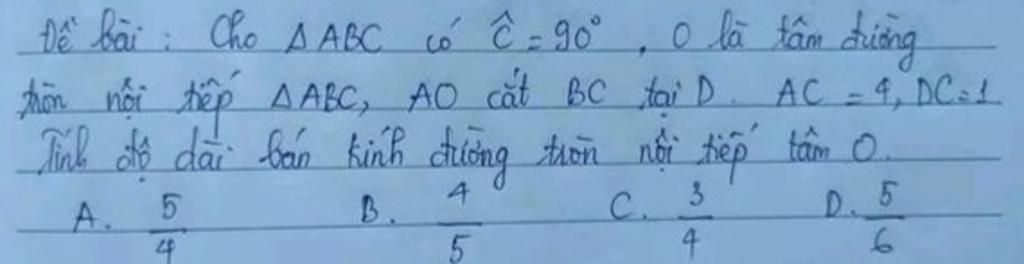 Đề bài: Cho ΔABC có Ĉ = 90°, O là tâm đường
tròn nội tiếp ΔABC, AO cắt BC tại D. AC = 4, DC = 1
Tính độ dài bán kính đường tròn nội tiếp tâm O.
A. 5/4 B. 4/5 C. 3/4 D. 5/6